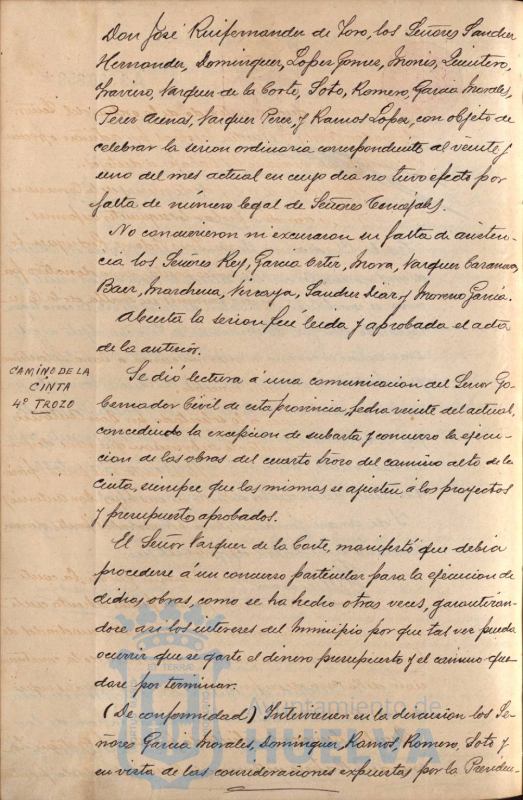 Don José Ruifernandez de Toro, los Señores Sanchez
Hernandez, Dominguez, Lopez Gomez, Monis, Quintero,
Traviero, Vazquez de la Corte, Soto, Romero, Garcia Morales,
Perez Arenas, Vazquez Perez, y Ramos Lopez, con objeto de
celebrar la sesion ordinaria correspondiente al veinte y
uno del mes actual en cuyo dia no tuvo efecto por
falta de número legal de Señores Concejales.
No concurrieron ni excusaron su falta de asisten-
cia los Señores Rey, Garcia Ortiz, Mora, Vazquez
Baez, Marchena, Vizcaya, Sanchez Diaz, y Moreno Garcia.
Abierta la sesion fué leida y aprobada el acta
de la anterior.
CAMINO DE LA
CINTA
4º TROZO
Se dió lectura á una comunicacion del Señor Go-
bernador Civil de esta provincia, fecha veinte del actual,
concediendo la excepcion de subasta y concurso la ejecu-
cion de las obras del cuarto trozo del camino alto de la
Cinta, siempre que las mismas se ajusten á los proyectos
y presupuesto aprobados.
El Señor Vazquez de la Corte, manifestó que debia
procederse á un concurso particular para la ejecucion de
dichas obras, como se ha hecho otras veces, garantizan-
dose asi los intereses del Municipio por que tal vez pueda
ocurrir que se gaste el dinero presupuesto y el camino que-
dase por terminar.
(De conformidad) Intervienen en la discusion los Se-
ñores Garcia Morales, Dominguez, Ramos, Romero, Soto y
en vista de las consideraciones expuestas por la Presiden-
Ayuntamiento de
HUELVA